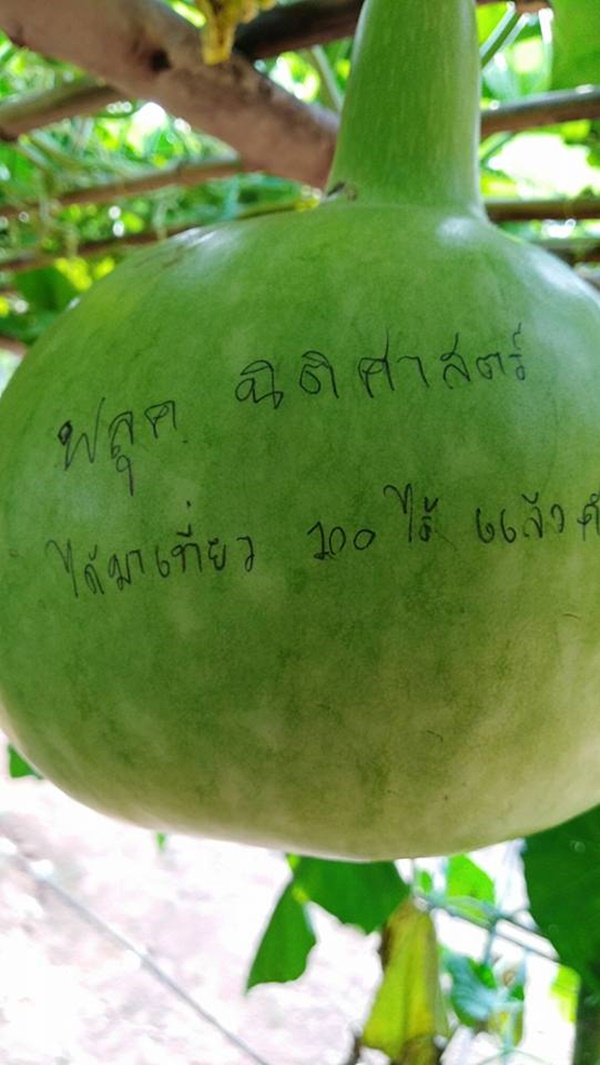 ฟลุค ฉิติศาสตร์
ได้มาเที่ยว 100 ไร่ แล้ว